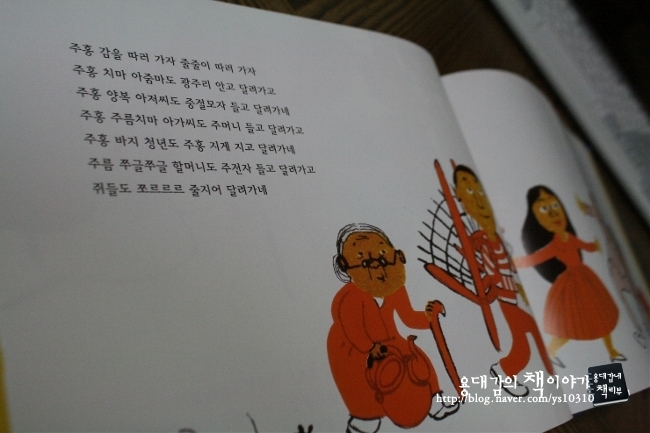 주홍 감을 따러 가자 줄줄이 따러 가자
주홍 치마 아줌마도 광주리 안고 달려가고
주홍 양복 아저씨도 중절모자 들고 달려가네
주홍 주름치마 아가씨도 주머니 들고 달려가고
주홍 바지 청년도 주홍 지게 지고 달려가네
주름 쭈글쭈글 할머니도 주전자 들고 달려가고
쥐들도 쪼르르르 줄지어 달려가네
용대감의 책이야기
http://blog.naver.com/ys10310
용대감네
책비부